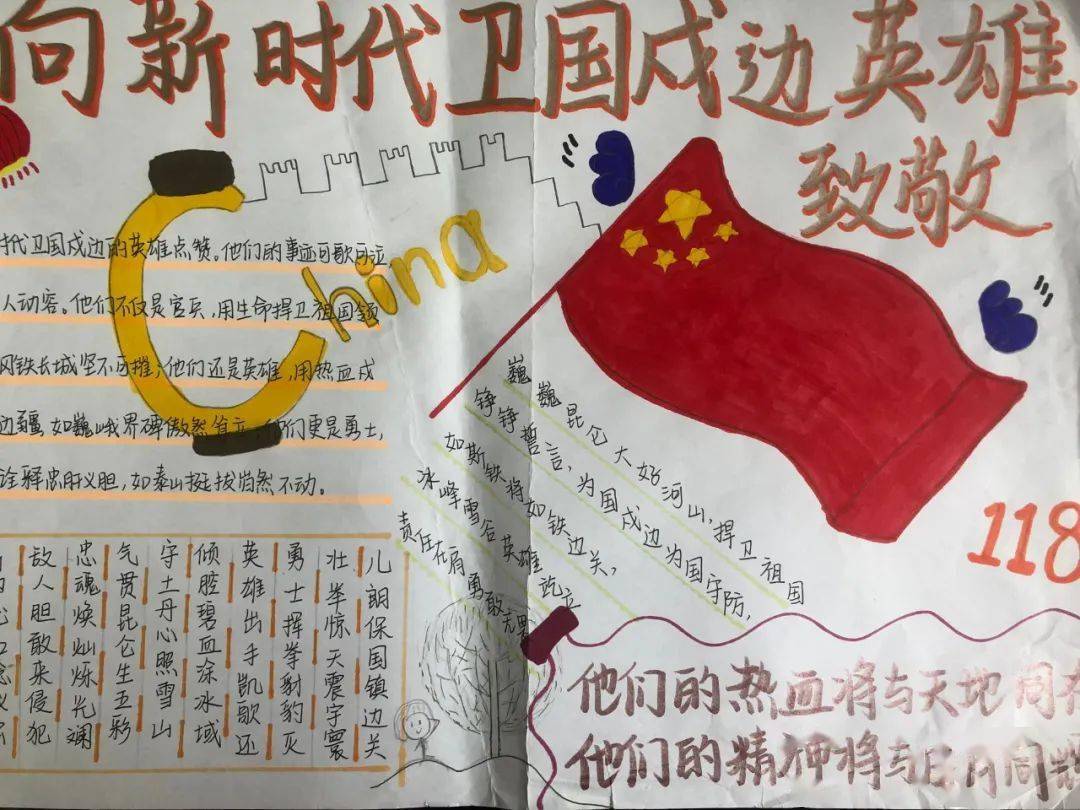 向新时代卫国戍边英雄
致敬
China
时代卫国戍边的英雄点赞。他们的事迹可歌可泣
人动容。他们不仅是官兵,用生命捍卫祖国领
铁长城坚不可摧;他们还是英雄,用热血戍
边疆,如巍峨界碑傲然伫立,他们更是勇士,
诠释忠肝义胆,如泰山挺拔岿然不动。
巍巍昆仑大好河山,捍卫祖国
铮铮誓言,为国戍边为国守防,
如斯铁将如铁边关,
冰峰雪谷英雄屹立
责任在肩勇敢无畏
儿朗保国镇边关
壮举惊天震宇寰
勇士挥拳豺豹灭
英雄出手凯歌还
倾腔碧血涂冰域
守土丹心照雪山
气贯昆仑生五彩
忠魂焕灿烁光斓
敌人胆敢来侵犯
118
他们的热血将与天地同在
他们的精神将与日月同